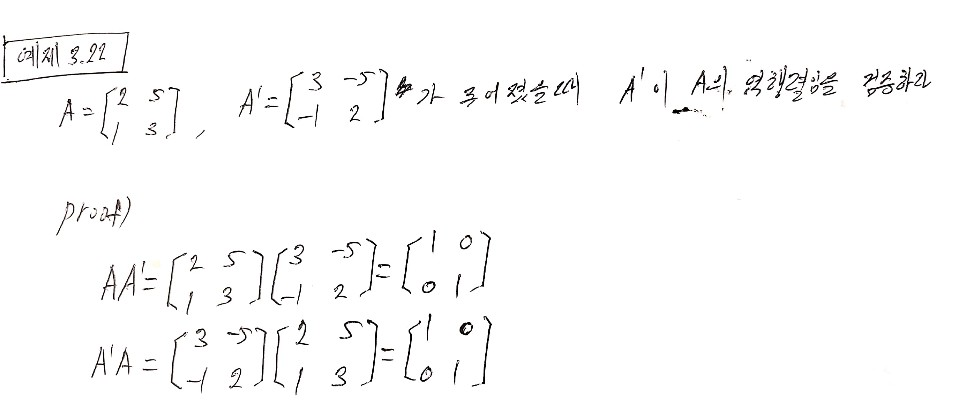 예제 3.22
A = [2 5; 1 3], A' = [3 -5; -1 2] 가 주어졌을때 A'이 A의 역행렬임을 검증하라
proof)
AA' = [2 5; 1 3][3 -5; -1 2] = [1 0; 0 1]
A'A = [3 -5; -1 2][2 5; 1 3] = [1 0; 0 1]